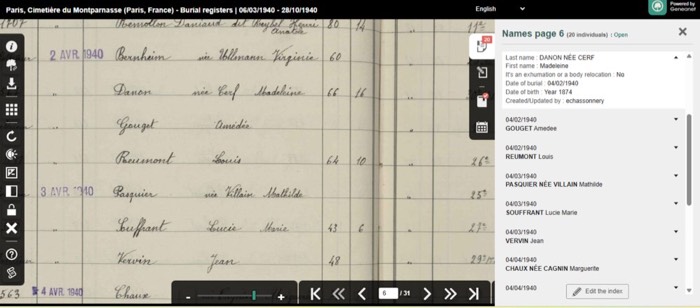 Paris, Cimetière du Montparnasse (Paris, France) - Burial registers | 06/03/1940 - 28/10/1940
English
Powered by
Geneanet
Names page 6 (20 individuals) : Open
80 14
2 AVR. 1940 Bernheim née Ullmann Virginie 60
Danon née Cerf Madeleine 66 16
Gouget Amédée
Reumont Louis 64 10
3 AVR. 1940 Pasquier née Villain Mathilde
Souffrant Lucie Marie 43 6
Vervin Jean 48
563 4 AVR. 1940 Chaux
Last name : DANON NÉE CERF
First name : Madeleine
It's an exhumation or a body relocation : No
Date of burial : 04/02/1940
Date of birth : Year 1874
Created/Updated by : echassonnery
04/02/1940
GOUGET Amedee
04/02/1940
REUMONT Louis
04/03/1940
PASQUIER NÉE VILLAIN Mathilde
04/03/1940
SOUFFRANT Lucie Marie
04/03/1940
VERVIN Jean
04/04/1940
CHAUX NÉE CAGNIN Marguerite
04/04/1940
Edit the index
6 /31